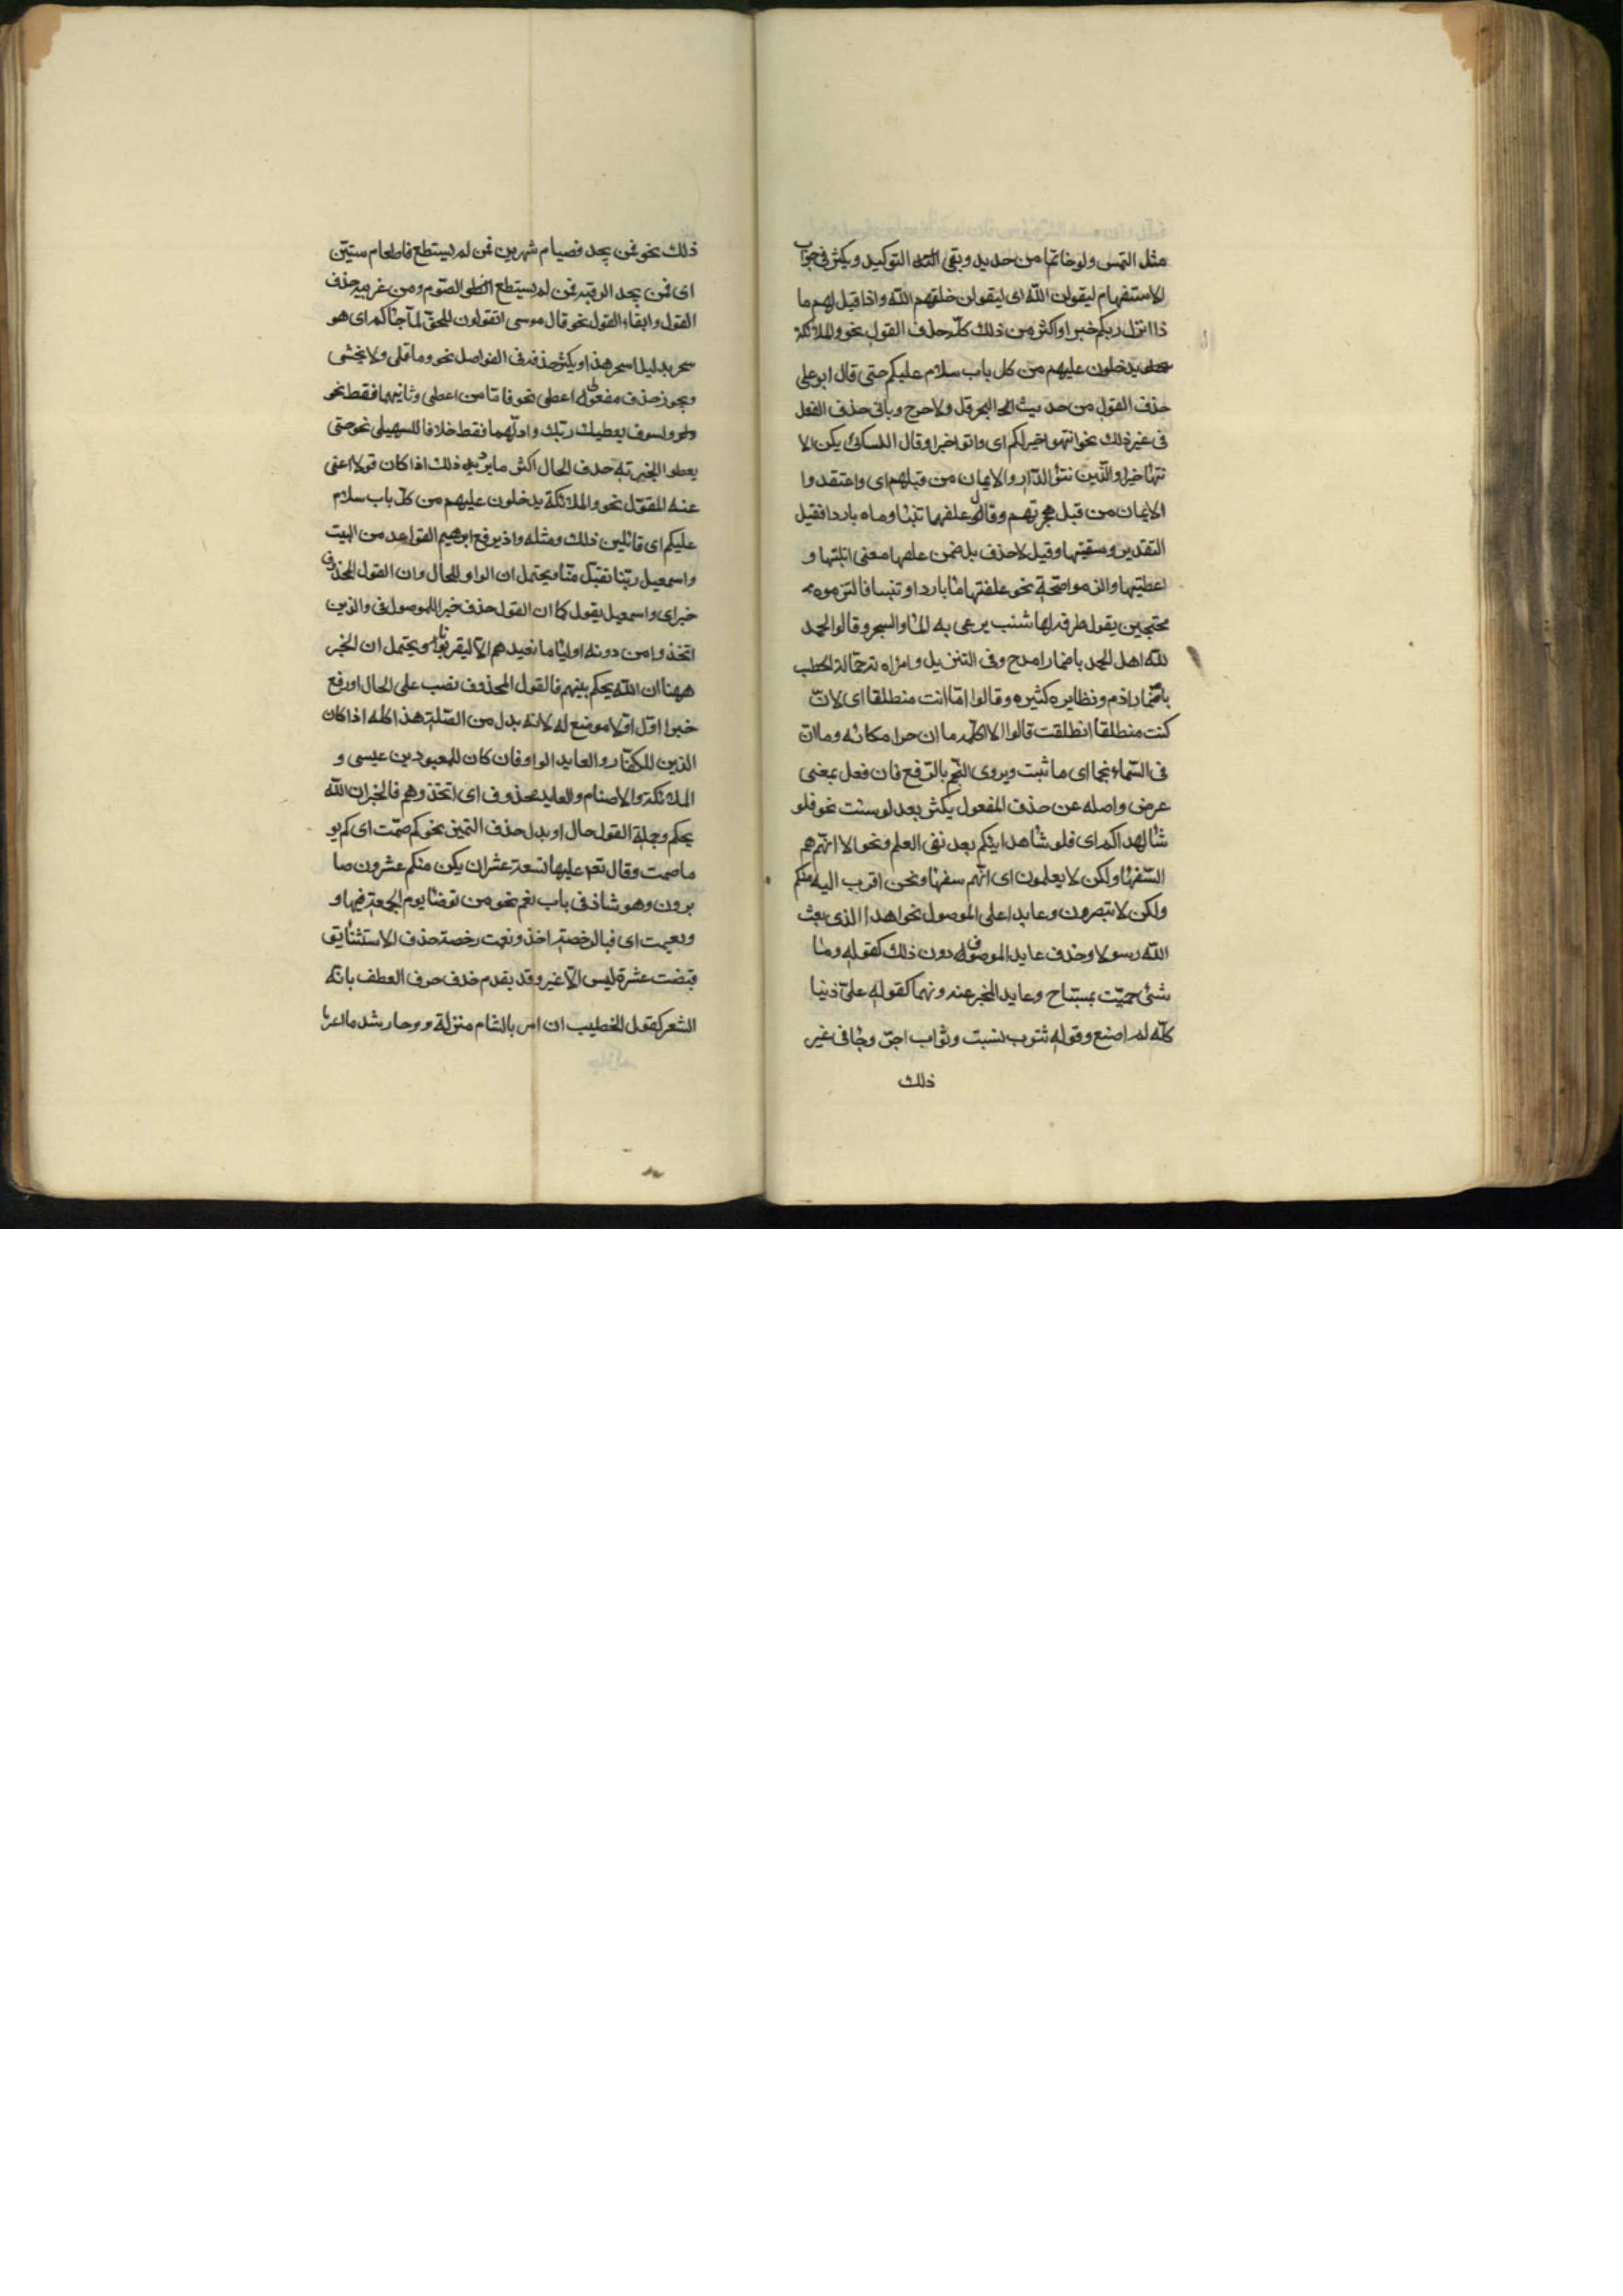 مثل التمس ولو خاتما من حديد وبقى التوكيد ويكثر فى جواب
الاستفهام ليقولن الله اى ليقولن خلقهم الله واذا قيل لهم ما
ذا انزل ربكم خيرا واكثر من ذلك كله حذف القول نحو والملائكة
يدخلون عليهم من كل باب سلام عليكم حتى قال ابو على
حذف القول من حديث البحر قل ولا حرج وياتى حذف الفعل
فى غير ذلك نحو انتهوا خيرا لكم اى واتوا خيرا وقال الكسائى يكن الا
نتها خيرا والذين تبوّا الدار والايمان من قبلهم اى واعتقدوا
الايمان من قبل هجرتهم وقال علفتها تبنا وماء باردا فقيل
التقدير وسقيتها وقيل لا حذف بل ضمن علفها معنى انلتها و
اعطيتها والزموا صحة نحو علفتها ما باردا وتبنا فالتزموه
محتجين بقول طرفه لها شنب يرعى به الما والسجر وقالوا الحمد
لله اهل الحمد باضمار امدح وفى التنزيل وامراته حمالة الحطب
باضمار اذم ونظايره كثيره وقالوا اما انت منطلقا اى لان
كنت منطلقا انطلقت قالوا لا اكلمه ما ان حرا مكانه وما ان
فى السماء نجما اى ما ثبت ويروى النجم بالرفع فان فعل بمعنى
عرض واصله عن حذف المفعول يكثر بعد لو شئت نحو فلو
شا لهداكم اى فلو شا هدايتكم بعد نفى العلم ونحو الا انهم هم
السفها ولكن لا يعلمون اى انهم سفها ونحن اقرب اليه منكم
ولكن لا تبصرون وعايدا على الموصول نحو اهذا الذى بعث
الله رسولا وحذف عايد الموصوف دون ذلك كقوله وما
شئ حميت بمستباح وعايد المخبر عنه دونهما كقوله على ذنبا
كله لم اصنع وقوله فثوب نسيت وثواب اجر وجا فى غير
ذلك
ذلك نحو فمن لم يجد فصيام شهرين فمن لم يستطع فاطعام ستين
اى فمن يجد الرقبه فمن لم يستطع الصوم ومن غريبه حذف
القول وابقاء القول نحو قال موسى اتقولون للحق لما جاكم اى هو
سحر بدليل اسحر هذا ويكثر حذفه فى الفواصل نحو وما قلى ولا يخشى
ويجوز حذف مفعولى اعطى نحو فاما من اعطى وثانيهما فقط نحو
ولسوف يعطيك ربك واولهما فقط خلافا للسهيلى نحو حتى
يعطوا الجزية حذف الحال اكثر ما يرد ذلك اذا كان قولا اغنى
عنه المقول نحو والملائكة يدخلون عليهم من كل باب سلام
عليكم اى قائلين ذلك ومثله واذ يرفع ابرهيم القواعد من البيت
واسمعيل ربنا تقبل منا ويحتمل ان الواو للحال وان القول المحذوف
خبر اى واسمعيل يقول كما ان القول حذف خبرا للموصول فى والذين
اتخذوا من دونه اوليا ما نعبدهم الا ليقربونا ويحتمل ان الخبر
ههنا ان الله يحكم بينهم فالقول المحذوف نصب على الحال او رفع
خبرا اول او لا موضع له لانه بدل من الصلة هذا كله اذا كان
الذين للكفار والعايد الواو فان كان للمعبودين عيسى و
الملائكة والاصنام والعايد محذوف اى اتخذوهم فالخبر ان الله
يحكم وجملة القول حال او بدل حذف التميز نحو كم صمت اى كم يو
ما صمت وقال تعه عليها تسعة عشر ان يكن منكم عشرون صا
برون وهو شاذ فى باب نعم نحو من توضا يوم الجمعة فبها و
ونعمت اى فبالرخصة اخذ ونعمت رخصة حذف الاستثنا يق
قبضت عشرة ليس الا غير وقد يقدم حذف حرف العطف بانه
الشعر كقول الخطيب ان امر بالشام منزله